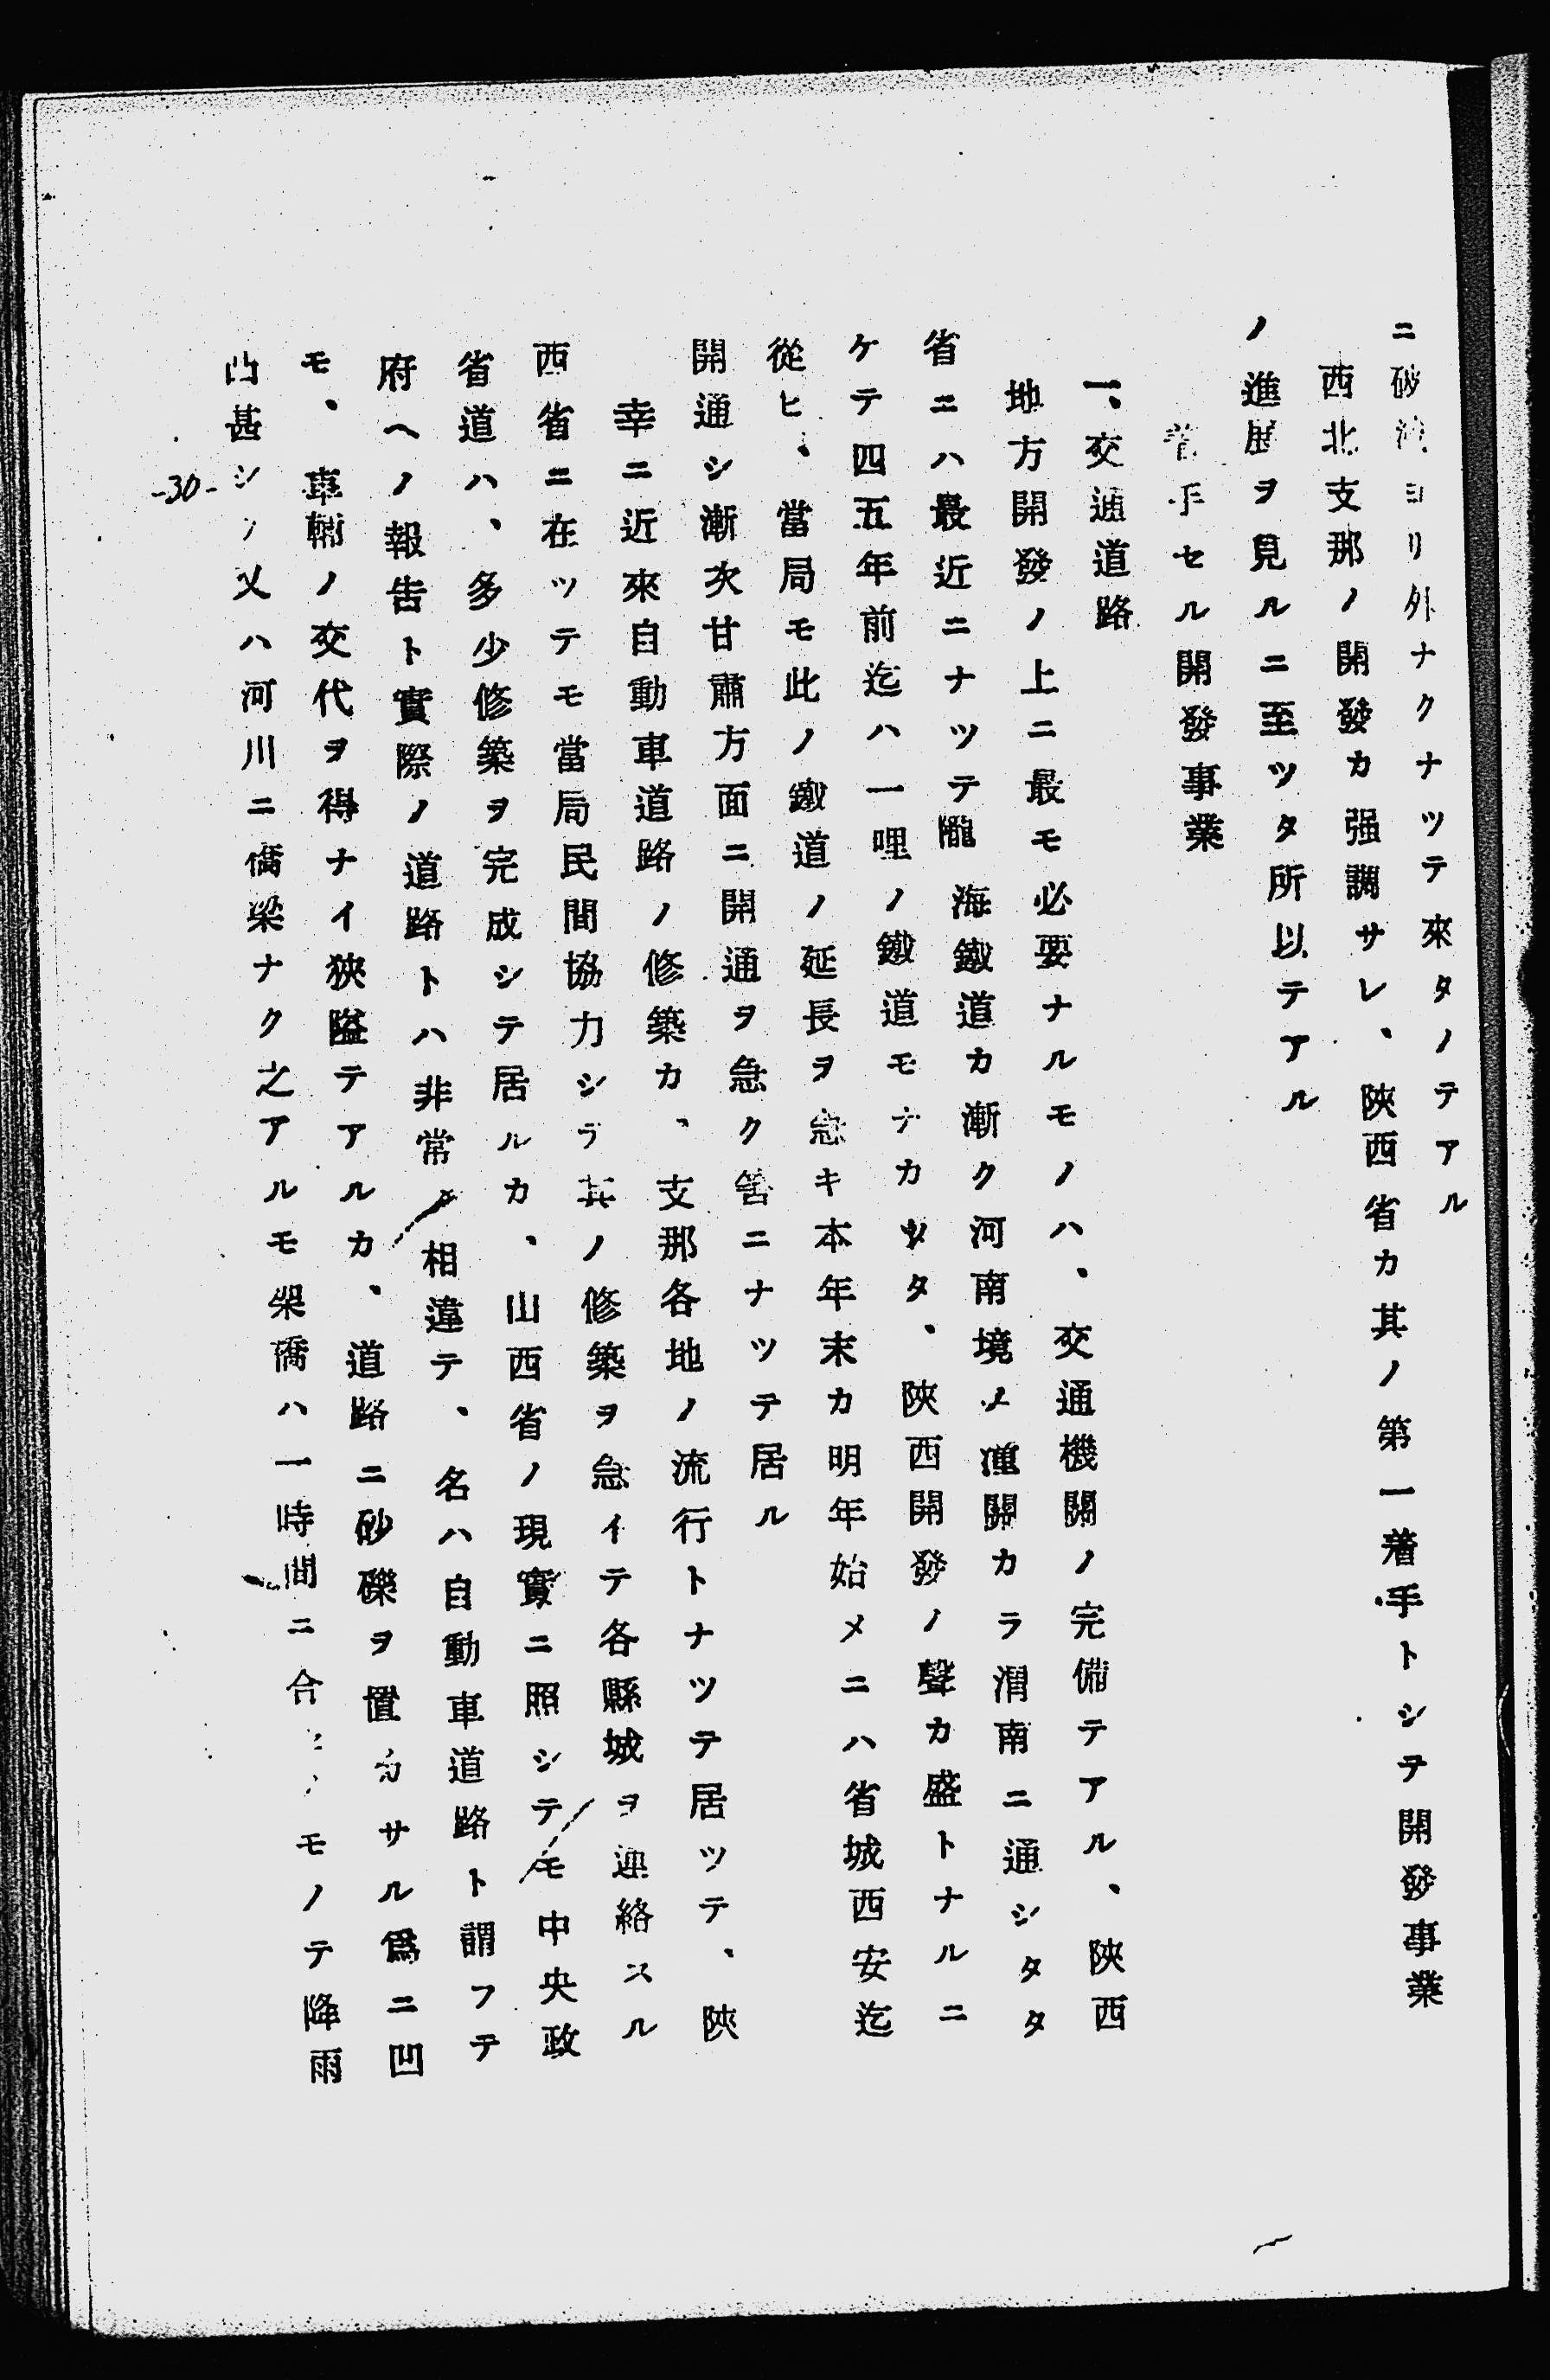 ニ破滅ヨリ外ナクナツテ來タノテアル
西北支那ノ開發カ强調サレ、陝西省カ其ノ第一着手トシテ開發事業
ノ進展ヲ見ルニ至ツタ所以テアル
着手セル開發事業
一、交通道路
地方開發ノ上ニ最モ必要ナルモノハ、交通機關ノ完備テアル、陝西
省ニハ最近ニナツテ隴海鐵道カ漸ク河南境ノ潼關カラ渭南ニ通シタタ
ケテ四五年前迄ハ一哩ノ鐵道モナカツタ、陝西開發ノ聲カ盛トナルニ
從ヒ、當局モ此ノ鐵道ノ延長ヲ急キ本年末カ明年始メニハ省城西安迄
開通シ漸次甘肅方面ニ開通ヲ急ク筈ニナツテ居ル
幸ニ近來自動車道路ノ修築カ、支那各地ノ流行トナツテ居ツテ、陝
西省ニ在ツテモ當局民間協力シテ其ノ修築ヲ急イテ各縣城ヲ連絡スル
省道ハ、多少修築ヲ完成シテ居ルカ、山西省ノ現實ニ照シテモ中央政
府ヘノ報告ト實際ノ道路トハ非常ノ相違テ、名ハ自動車道路ト謂フテ
モ、車輛ノ交代ヲ得ナイ狹隘テアルカ、道路ニ砂礫ヲ置カサル爲ニ凹
凸甚シク又ハ河川ニ橋梁ナク之アルモ架橋ハ一時間ニ合セノモノテ降雨
-30-